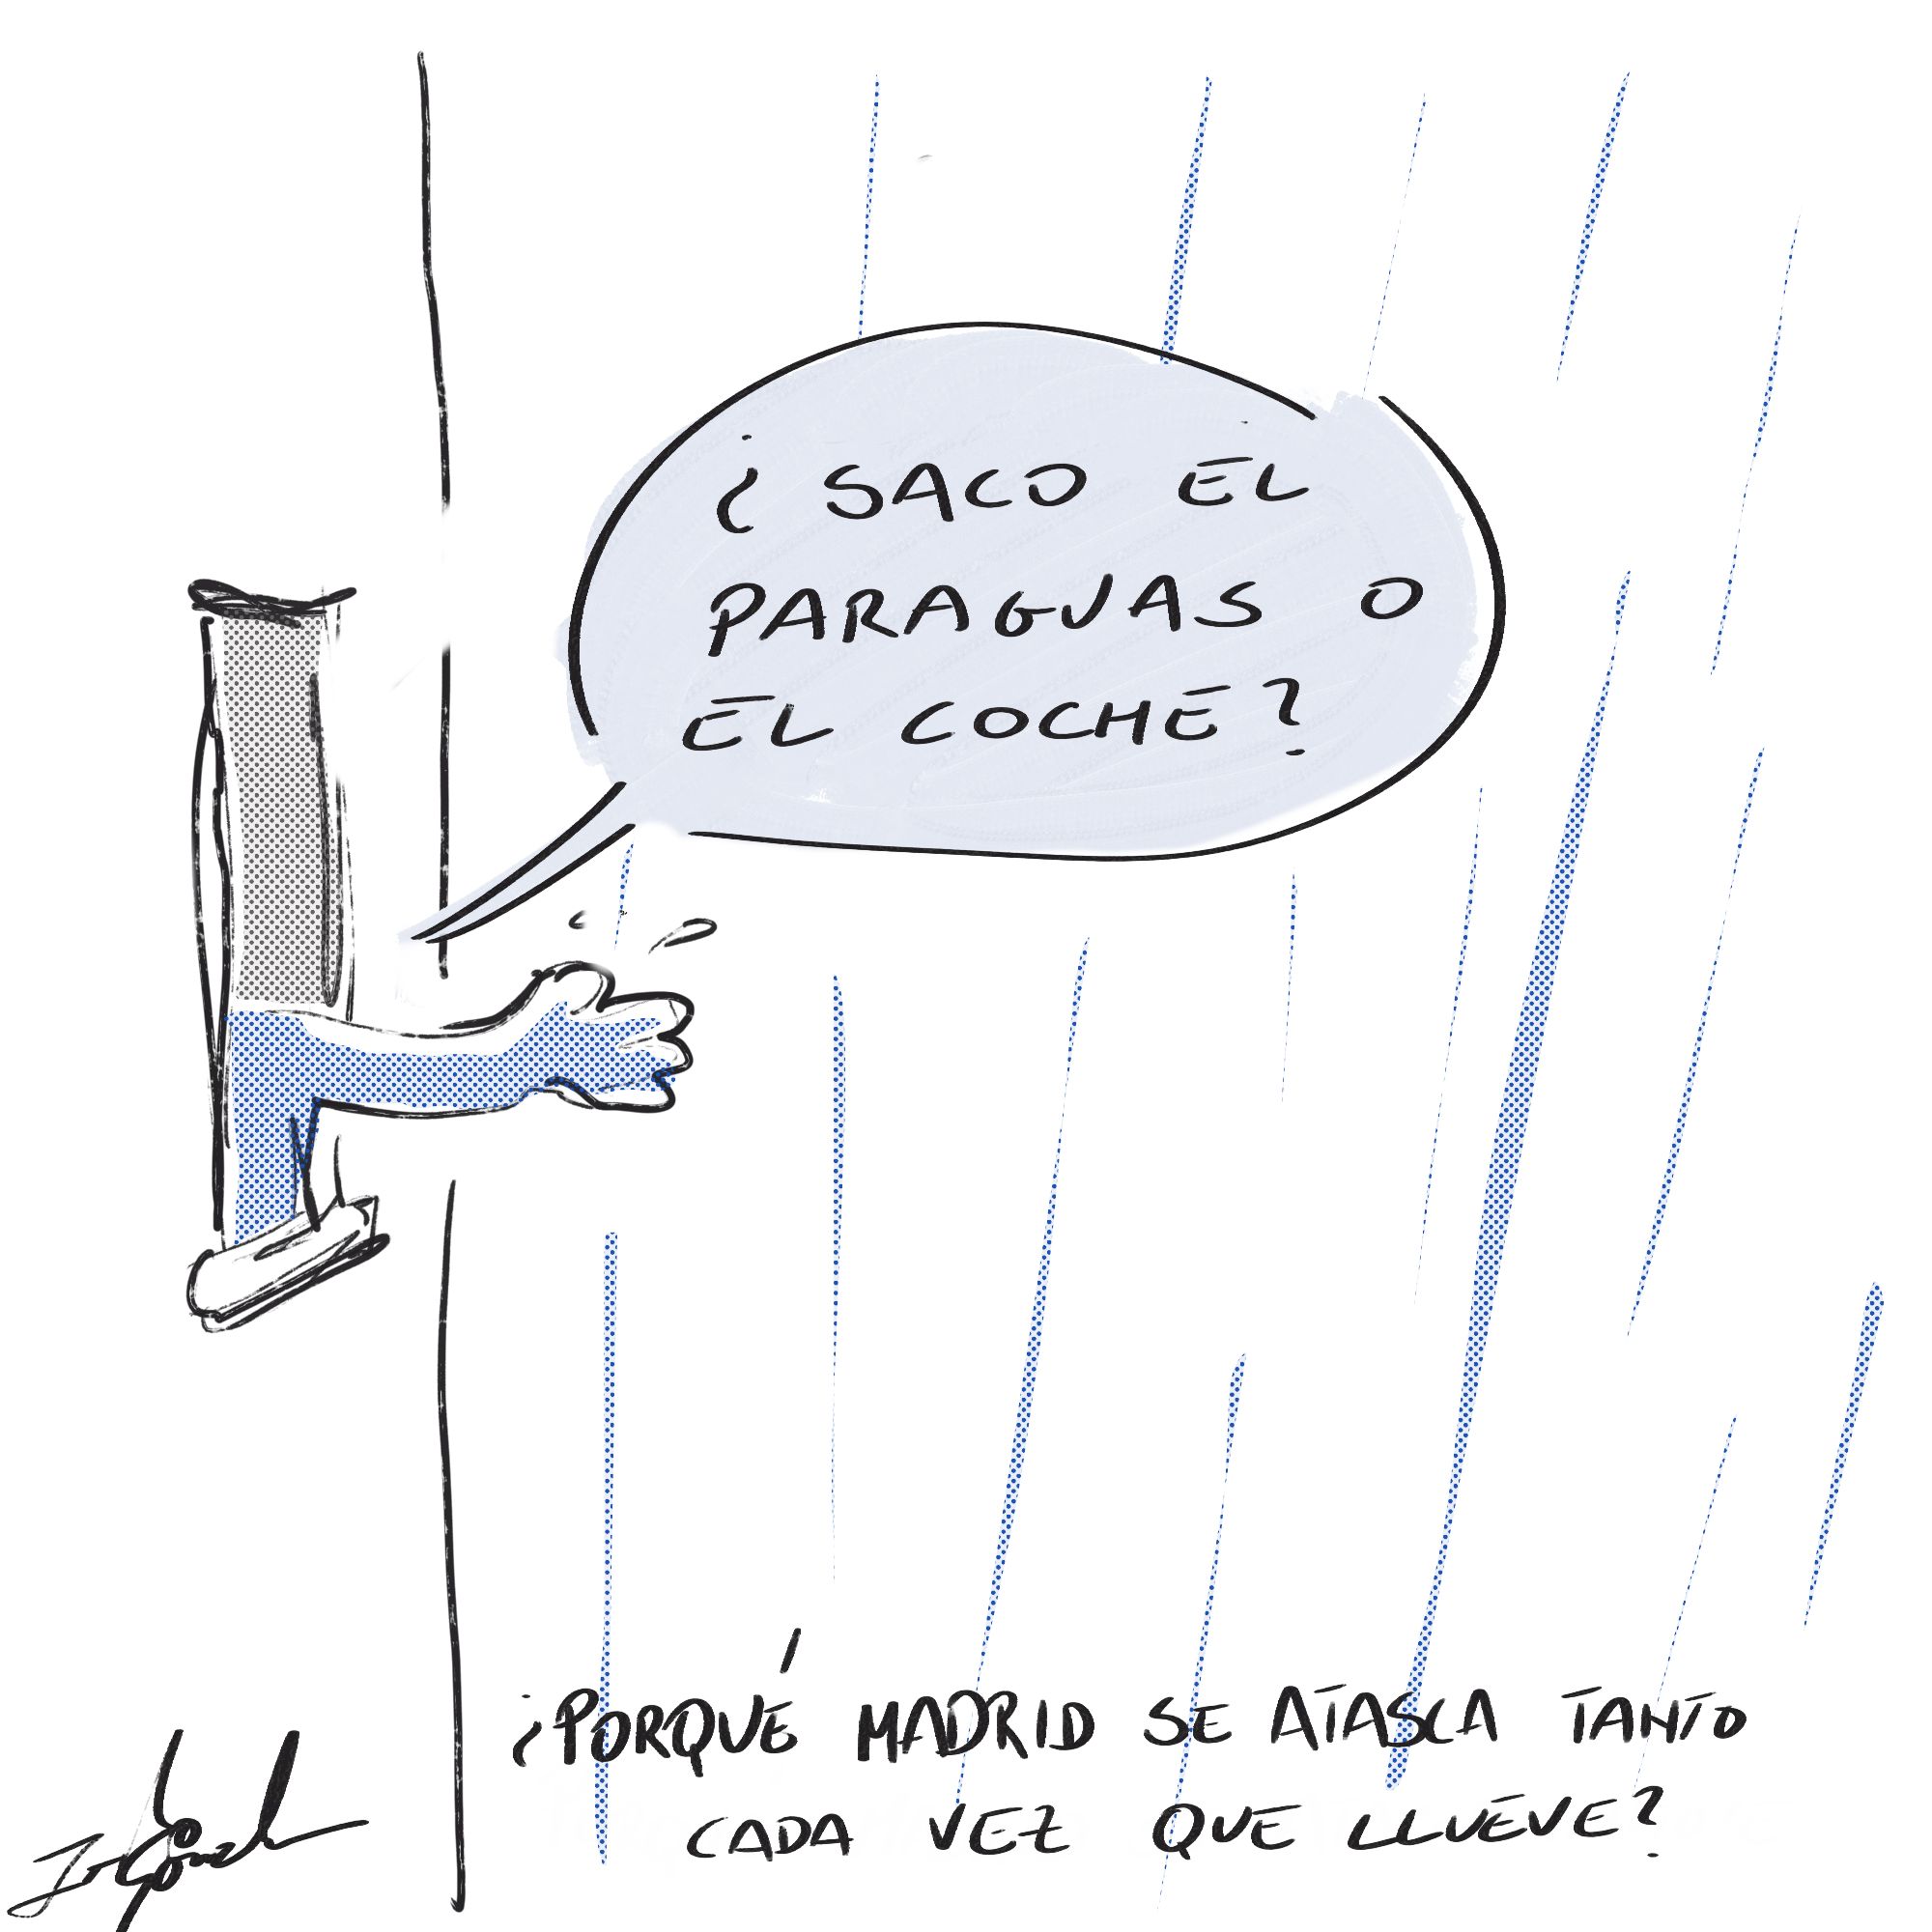 ¿SACO EL
PARAGUAS O
EL COCHE?
¿PORQUÉ MADRID SE ATASCA TANTO
CADA VEZ QUE LLUEVE?